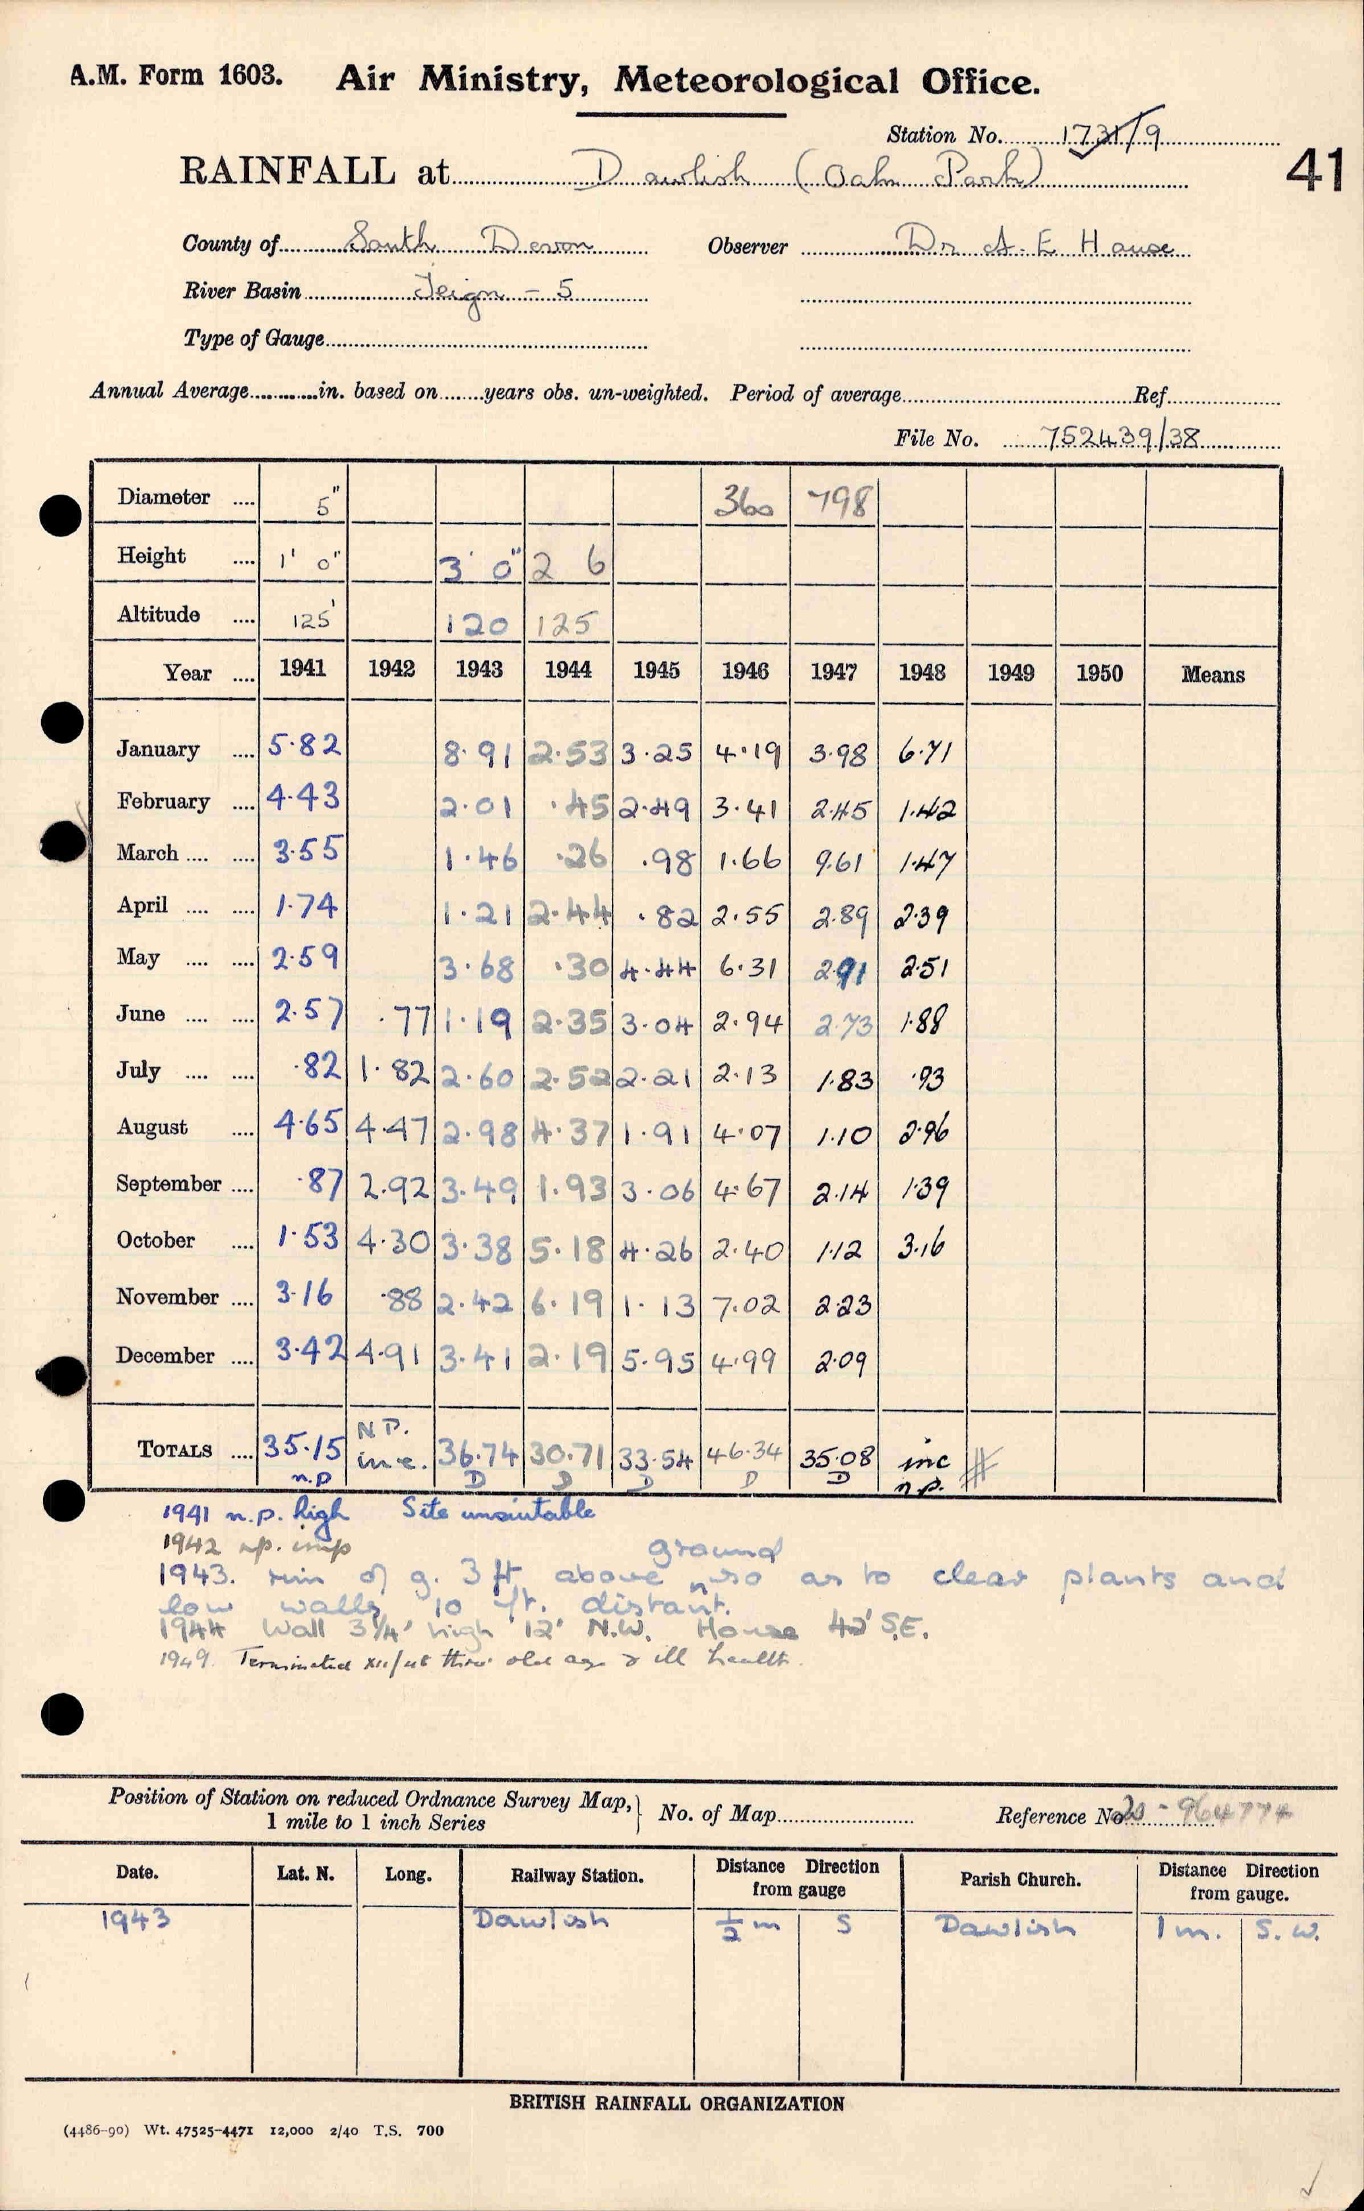 A.M. Form 1603. Air Ministry, Meteorological Office.
Station No. 1731/9
41
RAINFALL at Dawlish (Oak Park)
County of South Devon Observer Dr A. E House
River Basin Teign - 5
Type of Gauge
Annual Average in. based on years obs. un-weighted. Period of average Ref
File No. 752439/38
Diameter 5" 360 798
Height 1' 0" 3' 0" 2 6
Altitude 125' 120 125
Year 1941 1942 1943 1944 1945 1946 1947 1948 1949 1950 Means
January 5.82 8.91 2.53 3.25 4.19 3.98 6.71
February 4.43 2.01 .45 2.49 3.41 2.45 1.42
March 3.55 1.46 .26 .98 1.66 9.61 1.47
April 1.74 1.21 2.44 .82 2.55 2.89 2.39
May 2.59 3.68 .30 4.44 6.31 2.91 2.51
June 2.57 .77 1.19 2.35 3.04 2.94 2.73 1.88
July .82 1.82 2.60 2.52 2.21 2.13 1.83 .93
August 4.65 4.47 2.98 4.37 1.91 4.07 1.10 2.96
September .87 2.92 3.49 1.93 3.06 4.67 2.14 1.39
October 1.53 4.30 3.38 5.18 4.26 2.40 1.12 3.16
November 3.16 .88 2.42 6.19 1.13 7.02 2.23
December 3.42 4.91 3.41 2.19 5.95 4.99 2.09
TOTALS 35.15 N.P. inc. 36.74 30.71 33.54 46.34 35.08 inc
n.p D D D D D n.p.
1941 n.p. high Site unsuitable
1942 n.p. imp
1943. rim of g. 3 ft above ground so as to clear plants and
low walls 10 ft. distant.
1944 Wall 3¼' high 12' N.W. House 42' S.E.
1949. Terminated XII/48 thro' old age & ill health.
Position of Station on reduced Ordnance Survey Map, 1 mile to 1 inch Series No. of Map Reference No. 20 - 964774
Date. Lat. N. Long. Railway Station. Distance Direction from gauge Parish Church. Distance Direction from gauge.
1943 Dawlish ½ m S Dawlish 1 m. S.W.
BRITISH RAINFALL ORGANIZATION
(4486-90) Wt. 47525-4471 12,000 2/40 T.S. 700